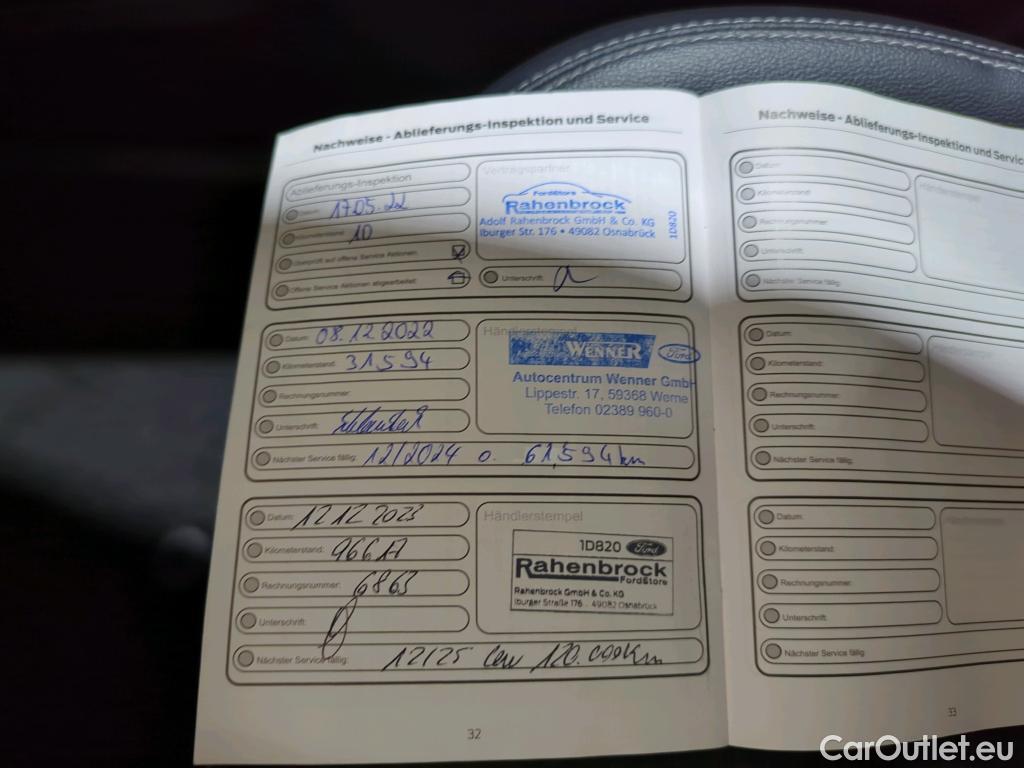 Nachweise - Ablieferungs-Inspektion und Service
Ablieferungs-Inspektion
Datum: 17.05.22
10
Überprüft auf offene Service Aktionen:
Offene Service Aktionen abgearbeitet:
Vertragspartner
FordStore
Rahenbrock
Adolf Rahenbrock GmbH & Co. KG
Iburger Str. 176 • 49082 Osnabrück
1D820
Unterschrift:
Datum: 08.12.2022
Kilometerstand: 31594
Rechnungsnummer:
Unterschrift:
Nächster Service fällig: 12/2024 o. 61594 km
Händlerstempel
WENNER Ford
Autocentrum Wenner GmbH
Lippestr. 17, 59368 Werne
Telefon 02389 960-0
Datum: 12 12 2023
Kilometerstand:
Rechnungsnummer: 6863
Unterschrift:
Nächster Service fällig: 12/25 120.000km
Händlerstempel
1D820 Ford
Rahenbrock
FordStore
Rahenbrock GmbH & Co. KG
Iburger Straße 176 . 49082 Osnabrück
32
Nachweise - Ablieferungs-Inspektion und Service
Datum:
Kilometerstand:
Rechnungsnummer:
Unterschrift:
Nächster Service fällig:
Händlerstempel
Datum:
Kilometerstand:
Rechnungsnummer:
Unterschrift:
Nächster Service fällig:
Datum:
Kilometerstand:
Rechnungsnummer:
Unterschrift:
Nächster Service fällig:
33
CarOutlet.eu